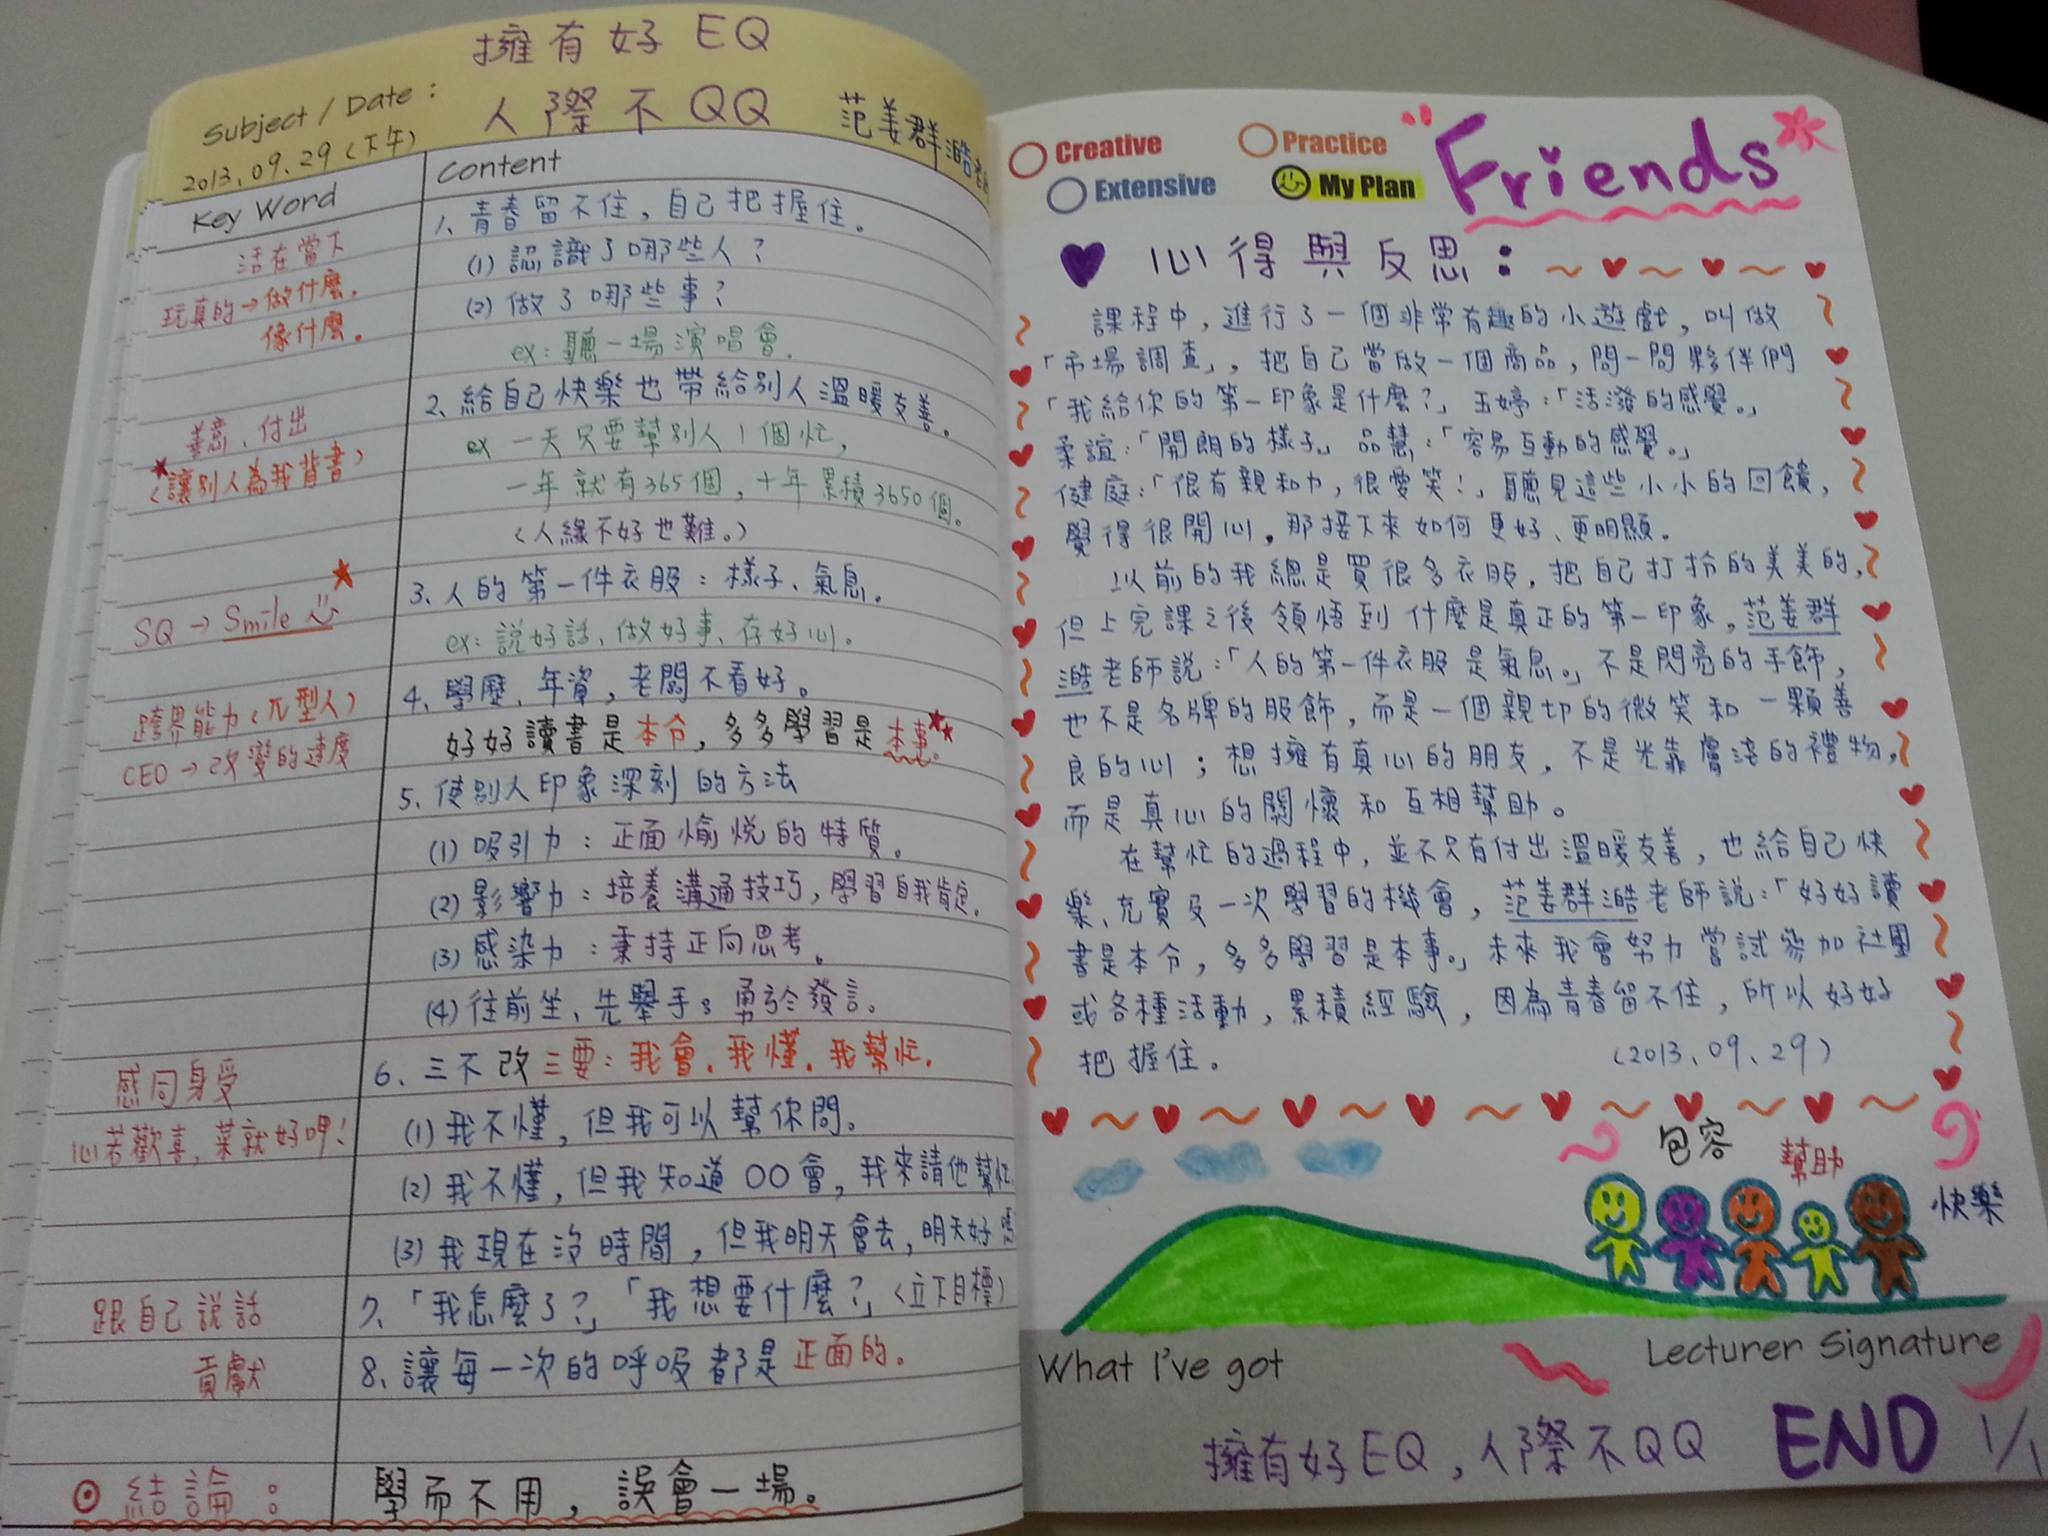 擁有好EQ
Subject / Date : 人際不QQ 范姜群澔
2013.09.29(下午)
Key Word
Content
活在當下
玩真的→做什麼,
像什麼。
善意、付出
(讓別人為我背書)
SQ → Smile
跨界能力(π型人)
CEO→改變的速度
感同身受
心若歡喜,菜就好呷!
跟自己說話
貢獻
1、青春留不住,自己把握住。
(1) 認識了哪些人?
(2) 做了哪些事?
ex:聽一場演唱會。
2、給自己快樂也帶給別人溫暖友善。
ex 一天只要幫別人1個忙,
一年就有365個,十年累積3650個。
(人緣不好也難。)
3、人的第一件衣服:樣子、氣息。
ex:說好話、做好事、存好心。
4、學歷、年資,老闆不看好。
好好讀書是本分,多多學習是本事。
5、使別人印象深刻的方法
(1) 吸引力:正面愉悅的特質。
(2) 影響力:培養溝通技巧,學習自我肯定。
(3) 感染力:秉持正向思考。
(4) 往前坐、先舉手;勇於發言。
6、三不改三要:我會.我懂.我幫忙.
(1) 我不懂,但我可以幫你問。
(2) 我不懂,但我知道OO會,我來請他幫忙
(3) 我現在沒時間,但我明天會去,明天好嗎
7、「我怎麼了?」「我想要什麼?」(立下目標)
8、讓每一次的呼吸都是正面的。
⊙結論: 學而不用,誤會一場。
Creative
Practice
Extensive
My Plan
"Friends
心得與反思:
課程中,進行了一個非常有趣的小遊戲,叫做
「市場調查」,把自己當做一個商品,問一問夥伴們
「我給你的第一印象是什麼?」玉婷:「活潑的感覺。」
柔誼:「開朗的樣子」品慧:「容易互動的感覺。」
健庭:「很有親和力,很愛笑!」聽見這些小小的回饋,
覺得很開心。那接下來如何更好、更明顯.
以前的我總是買很多衣服,把自己打扮的美美的,
但上完課之後領悟到什麼是真正的第一印象,范姜群
澔老師說:「人的第一件衣服是氣息。」不是閃亮的手飾,
也不是名牌的服飾,而是一個親切的微笑和一顆善
良的心;想擁有真心的朋友,不是光靠膚淺的禮物,
而是真心的關懷和互相幫助。
在幫忙的過程中,並不只有付出溫暖友善,也給自己快
樂、充實及一次學習的機會,范姜群澔老師說:「好好讀
書是本分,多多學習是本事。」未來我會努力嘗試參加社團
或各種活動,累積經驗,因為青春留不住,所以好好
把握住。
(2013.09.29)
包容
幫助
快樂
What I've got
Lecturer Signature
擁有好EQ,人際不QQ END 1/1